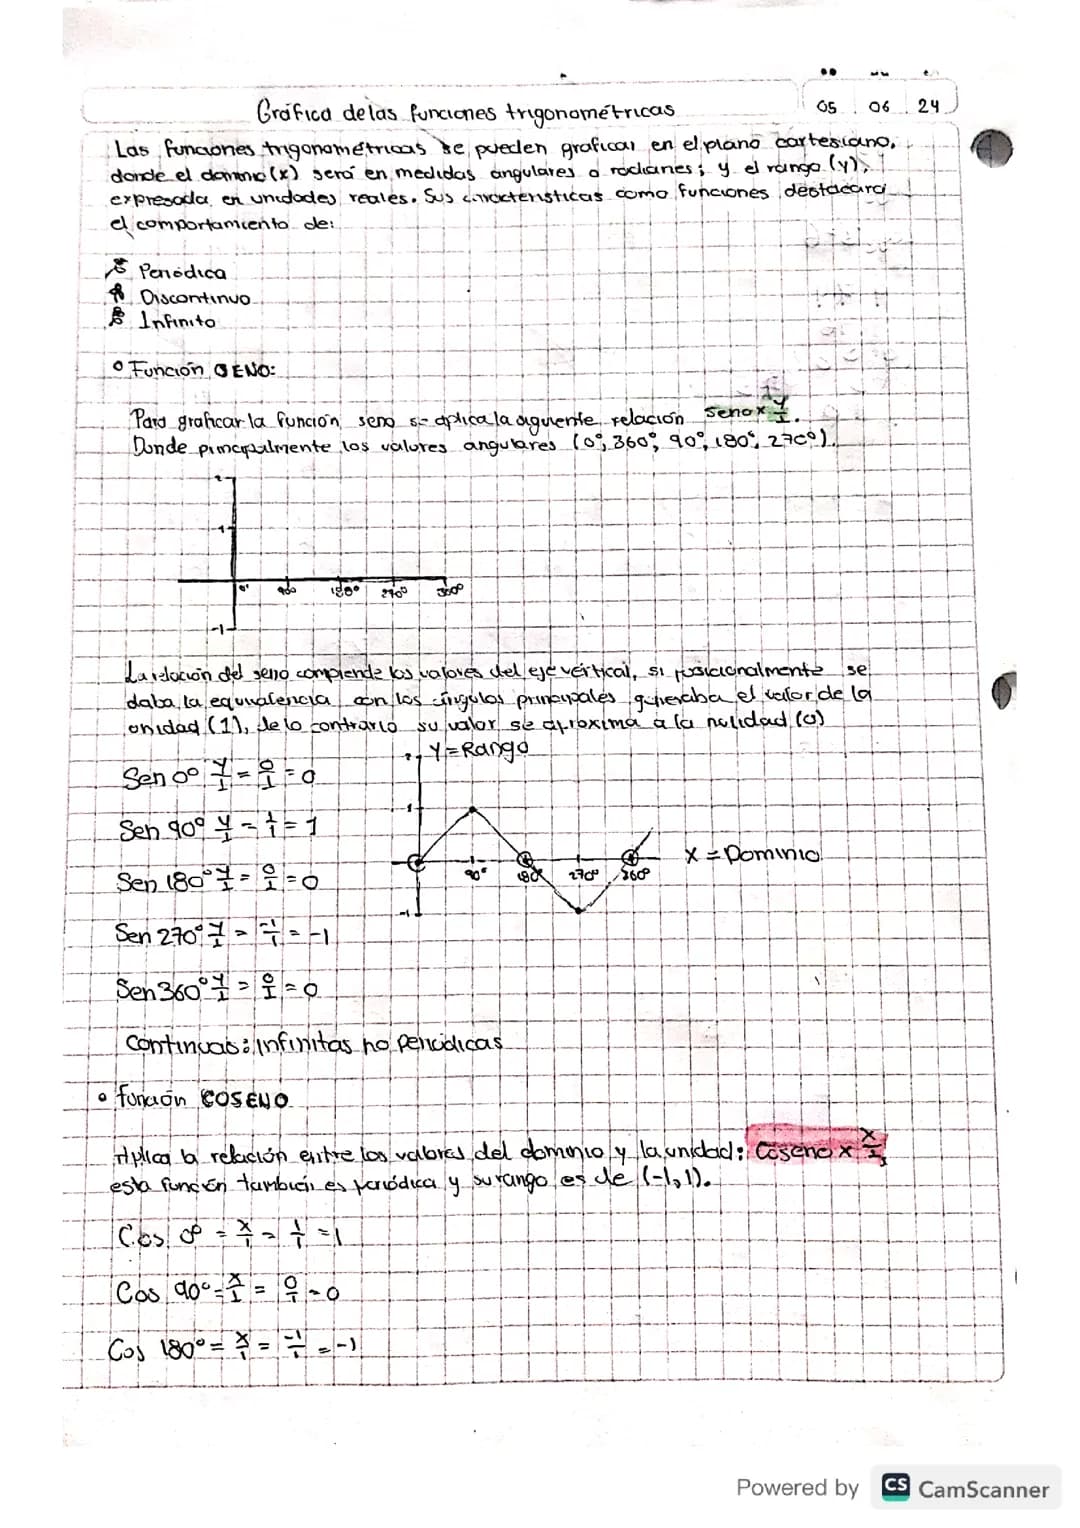 05 06 24
Gráfica de las funciones trigonométricas
Las funciones trigonométricas se pueden graficar en el plano cartesiano,
donde el domino (x) será en medidas angulares o radianes; y el rango (y),
expresada en unidades reales. Sus características como funciones destacara
el comportamiento de:
Periódica
Discontinuo
Infinito
° Función SENO:
Para graficar la función seno se aplica la siguiente relación seno x y/1.
Donde principalmente los valores angulares (0°, 360°, 90°, 180°, 270°).
2
1
0° 90° 180° 270° 360°
-1
La relación del seno comprende los valores del eje vertical, si posicionalmente se
daba la equivalencia con los ángulos principales generaba el valor de la
unidad (1), de lo contrario su valor se aproxima a la nulidad (0)
2 y = Rango
Sen 0° y/1 = 0/1 = 0
1
Sen 90° y/1 = 1/1 = 1
X = Dominio
90° 180° 270° 360°
Sen 180° y/1 = 0/1 = 0
-1
Sen 270° y/1 = -1/1 = -1
Sen 360° y/1 = 0/1 = 0
Continuas: infinitas no periódicas
• función COSENO
Aplica la relación entre los valores del dominio y la unidad: Coseno x x/1,
esta función también es periódica y su rango es de (-1,1).
Cos 0° = x/1 = 1/1 = 1
Cos 90° = x/1 = 0/1 = 0
Cos 180° = x/1 = -1/1 = -1
Powered by CS CamScanner